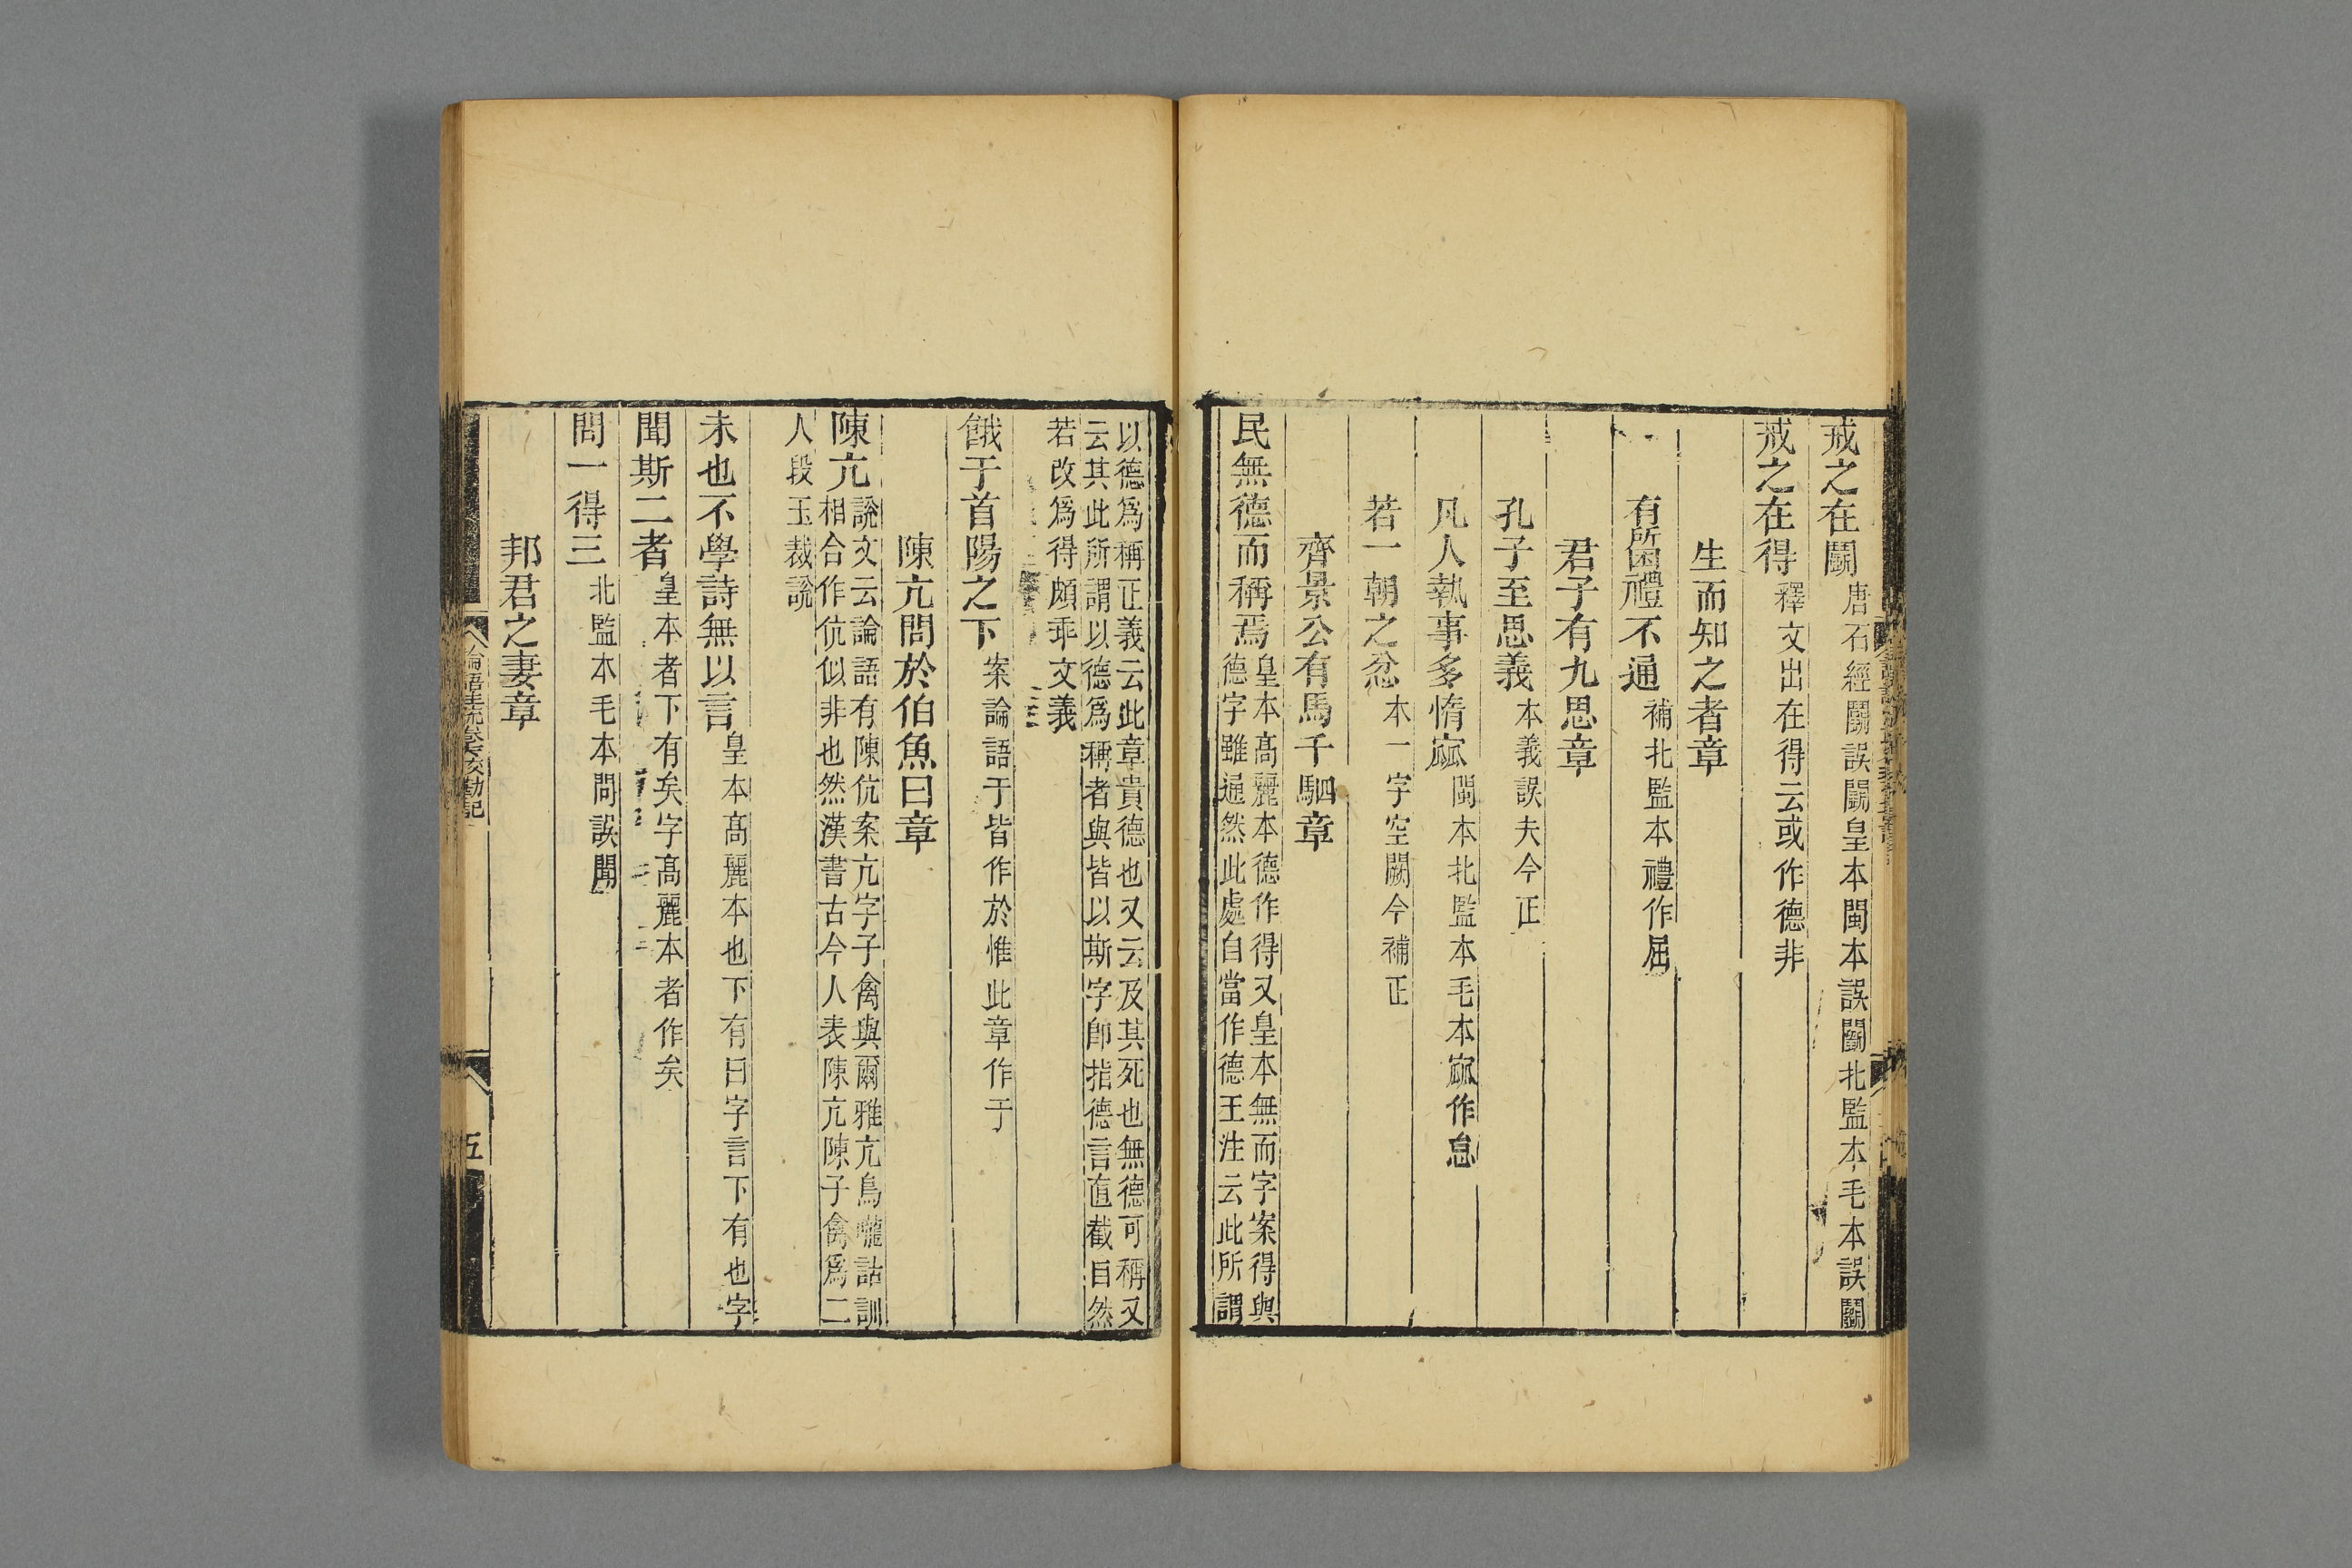 戒之在鬭唐石經鬭誤鬬皇本閩本誤鬭北監本毛本誤鬭
戒之在得釋文出在得云或作德非
生而知之者章
有所困禮不通補北監本禮作屈
君子有九思章
孔子至思義本義誤夫今正
凡人執事多惰窳閩本北監本毛本窳作怠
若一朝之忿本一字空闕今補正
齊景公有馬千駟章
民無德而稱焉皇本高麗本德作得又皇本無而字案得與
德字雖通然此處自當作德王注云此所謂
以德爲稱正義云此章貴德也又云及其死也無德可稱又
云其此所謂以德爲稱者與皆以斯字卽指德言直截自然
若改爲得頗乖文義
餓于首陽之下案論語于皆作於惟此章作于
陳亢問於伯魚曰章
陳亢說文云論語有陳伉案亢字子禽與爾雅亢鳥嚨詁訓
相合作伉似非也然漢書古今人表陳亢陳子禽爲二
人段玉裁說
未也不學詩無以言皇本高麗本也下有曰字言下有也字
聞斯二者皇本者下有矣字高麗本者作矣
問一得三北監本毛本問誤聞
邦君之妻章
論語注疏卷十六校勘記
五